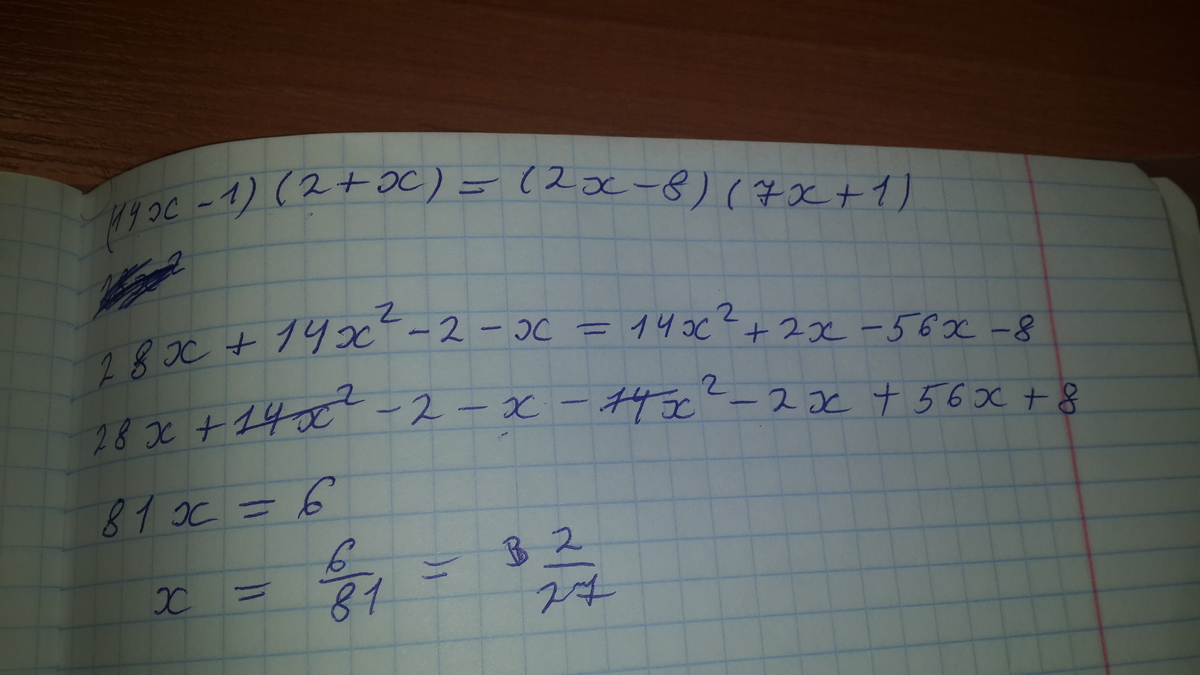 (14x - 1) (2 + x) = (2x - 8) (7x + 1)
28x + 14x² - 2 - x = 14x² + 2x - 56x - 8
28x + 14x² - 2 - x - 14x² - 2x + 56x + 8
81x = 6
x = 6/81 = 2/27